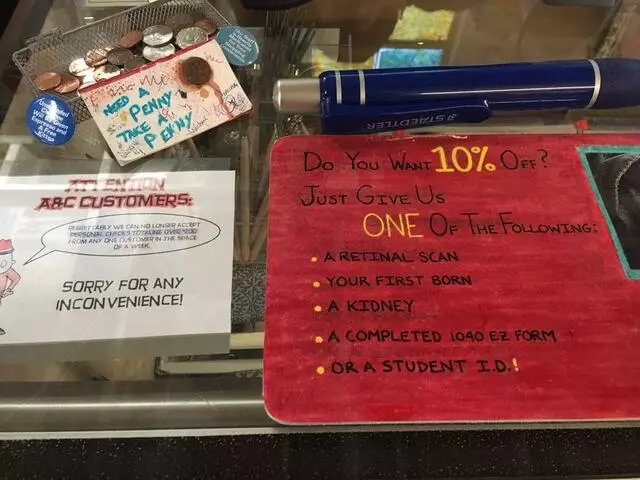 NEED A
PENNY
TAKE A
PENNY
Unattended
Children
Will Be Given
Espresso and
A Free
Kitten
STAEDTLER
ATTENTION
A&C CUSTOMERS:
REGRETTABLY WE CAN NO LONGER ACCEPT
PERSONAL CHECKS TOTALING OVER $200
FROM ANY ONE CUSTOMER IN THE SPACE
OF A WEEK.
SORRY FOR ANY
INCONVENIENCE!
DO YOU WANT 10% OFF?
JUST GIVE US
ONE OF THE FOLLOWING:
• A RETINAL SCAN
• YOUR FIRST BORN
• A KIDNEY
• A COMPLETED 1040 EZ FORM
• OR A STUDENT I.D.!